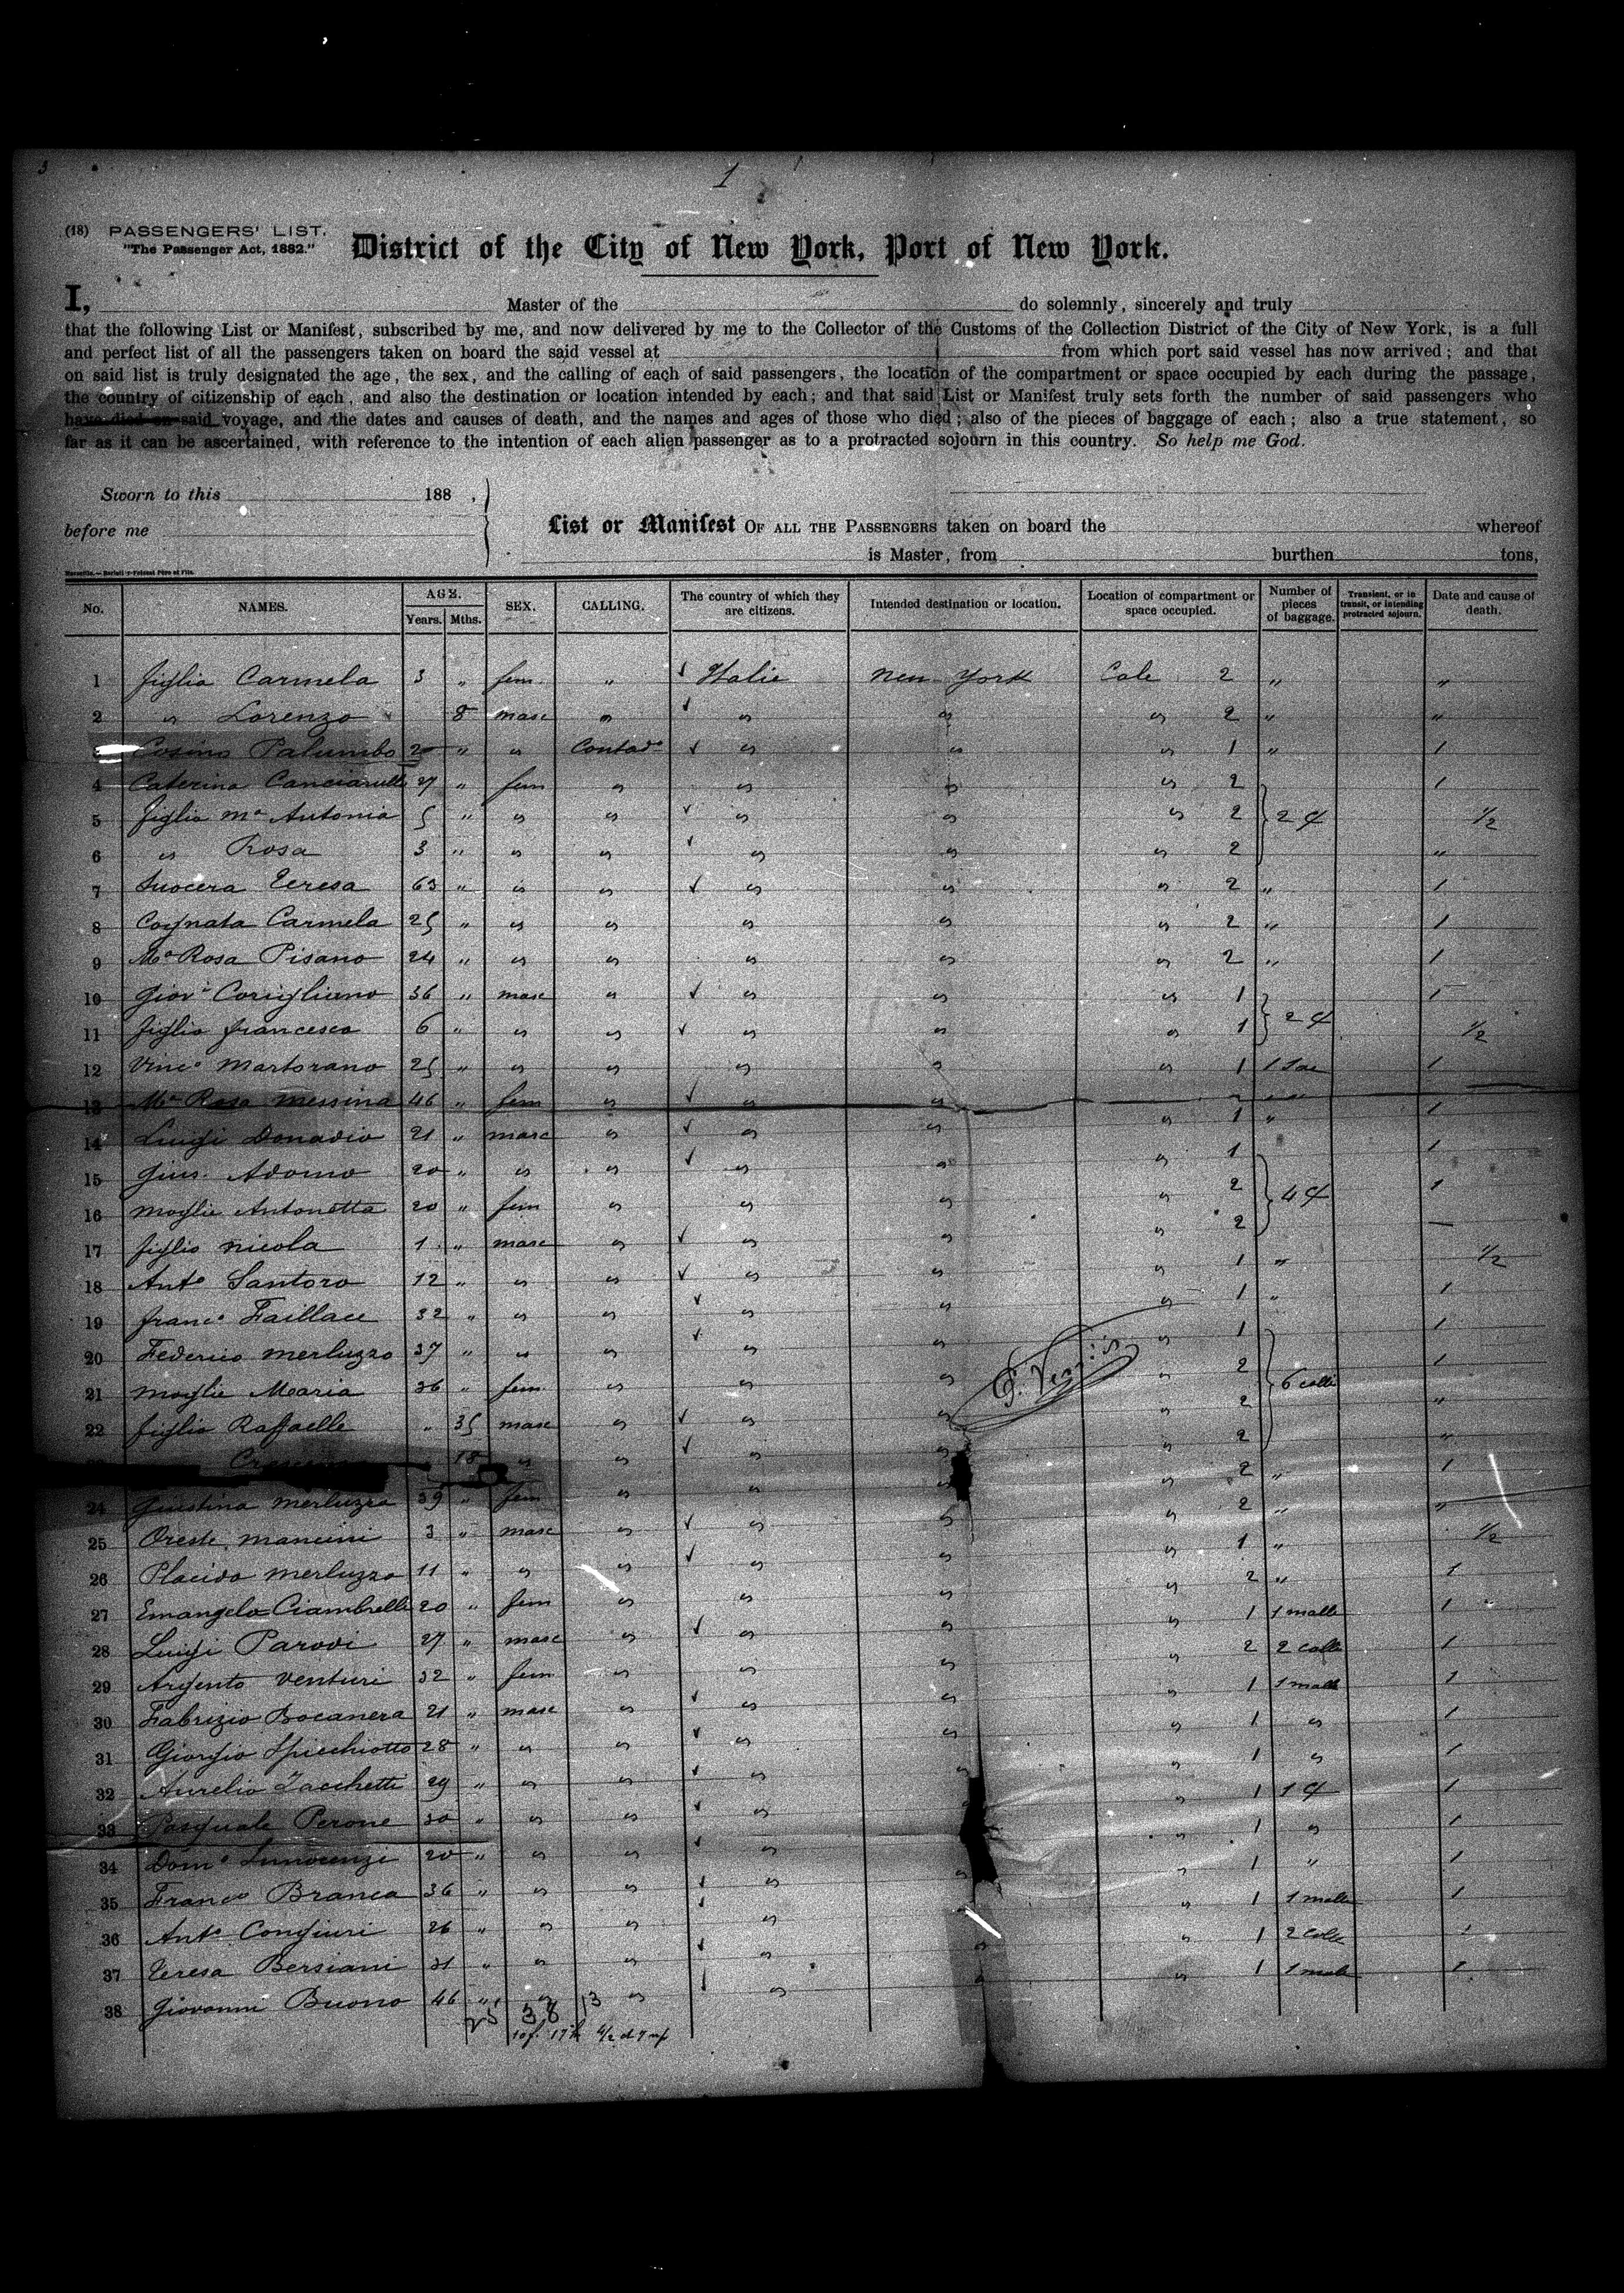 3
1
(18) PASSENGERS' LIST.
"The Passenger Act, 1882."
District of the City of New York, Port of New York.
I, Master of the do solemnly, sincerely and truly
that the following List or Manifest, subscribed by me, and now delivered by me to the Collector of the Customs of the Collection District of the City of New York, is a full
and perfect list of all the passengers taken on board the said vessel at from which port said vessel has now arrived; and that
on said list is truly designated the age, the sex, and the calling of each of said passengers, the location of the compartment or space occupied by each during the passage,
the country of citizenship of each, and also the destination or location intended by each; and that said List or Manifest truly sets forth the number of said passengers who
have died on said voyage, and the dates and causes of death, and the names and ages of those who died; also of the pieces of baggage of each; also a true statement, so
far as it can be ascertained, with reference to the intention of each alien passenger as to a protracted sojourn in this country. So help me God.
Sworn to this 188 ,
before me
List or Manifest OF ALL THE PASSENGERS taken on board the whereof
is Master, from burthen tons,
No. NAMES. AGE. Years. Mths. SEX. CALLING. The country of which they are citizens. Intended destination or location. Location of compartment or space occupied. Number of pieces of baggage. Transient, or in transit, or intending protracted sojourn. Date and cause of death.
1 figlia Carmela 3 " fem " ✓ Italie New York Cale 2 " "
2 " Lorenzo 8 masc " ✓ " " " 2 " "
Cosimo Palumbo 20 " " Contado ✓ " " " 1 " 1
4 Caterina Canciarulli 27 " fem " " " " 2 1
5 figlia Ma Antonia 5 " " " ✓ " " " 2 2 c/ 1/2
6 " Rosa 3 " " " ✓ " " " 2 "
7 Suocera Teresa 63 " " " ✓ " " " 2 " 1
8 Cognata Carmela 25 " " " " " " 2 " 1
9 Ma Rosa Pisano 24 " " " " " " 2 " 1
10 Giovi Corigliano 36 " masc " ✓ " " " 1 1
11 figlio francesco 6 " " " ✓ " " " 1 2 c/ 1/2
12 Vinco Martorano 25 " " " " " " 1 1 sac 1
13 Ma Rosa Messina 46 " fem " ✓ " "
14 Luigi Donadio 21 " masc " ✓ " " " 1 " 1
15 Gius. Adomo 20 " " " ✓ " " " 1 1
16 moglie Antonetta 20 " fem " " " " 2 4 c/ 1
17 figlio nicola 1 " masc " ✓ " " " 2
18 Anto Santoro 12 " " " ✓ " " " 1 " 1/2
19 franco Faillace 32 " " " ✓ " " " 1 " 1
20 Federico merluzzo 37 " " " ✓ " " " 1 1
21 moglie Maria 36 " fem " " " " 2 6 colli 1
22 figlio Raffaelle " 35 masc " ✓ " " " 2 "
18 " " ✓ " " " 2 "
24 Giustina merluzza 39 " fem " " " " 2 " 1
25 Oreste mancini 3 " masc " ✓ " " 2 " "
26 Placido merluzzo 11 " " " ✓ " " " 1 " 1/2
27 Emangela Ciambrelli 20 " fem " " " " 2 " 1
28 Luigi Parodi 27 " masc " ✓ " " " 1 1 malle 1
29 Argento Venturi 32 " fem " " " " 2 2 colli 1
30 Fabrizio Bocanera 21 " masc " ✓ " " 1 1 malle 1
31 Giorgio Spicchiotto 28 " " " ✓ " " " 1 " 1
32 Aurelio Zacchetti 29 " " " ✓ " " " 1 " 1
33 Pasquale Perone 30 " " " ✓ " " 1 1 c/ 1
34 Domo Innocenzi 20 " " " ✓ " " 1 " 1
35 Franco Branca 36 " " " ✓ " " " 1 " 1
36 Anto Congiuri 26 " " " ✓ " " 1 1 malle 1
37 Teresa Bersiani 31 " " " ✓ " " " 1 2 colli 1
38 Giovanni Buono 46 " " " ✓ " " " 1 1 malle 1
25 38 13